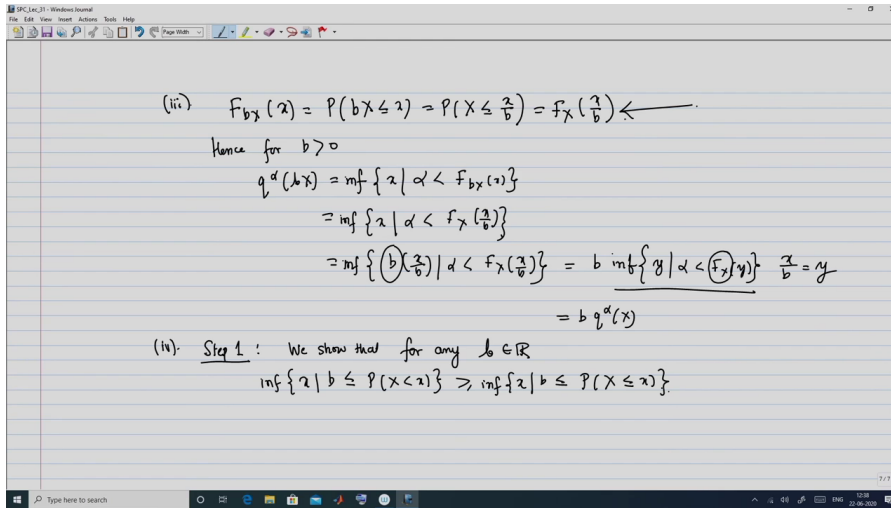 SPC_Lec_31 - Windows Journal
File Edit View Insert Actions Tools Help
Page Width
(iii) F_{bX}(x) = P(bX ≤ x) = P(X ≤ x/b) = F_X(x/b) ←
Hence for b > 0
q^α(bX) = inf {x | α < F_{bX}(x)}
= inf {x | α < F_X(x/b)}
= inf {b(x/b) | α < F_X(x/b)} = b inf{y | α < F_X(y)} x/b = y
= b q^α(X)
(iv). Step 1 : We show that for any b ∈ ℝ
inf{x | b ≤ P(X < x)} ≥ inf{x | b ≤ P(X ≤ x)}.
7/7
Type here to search
ENG
12:38
22-06-2020